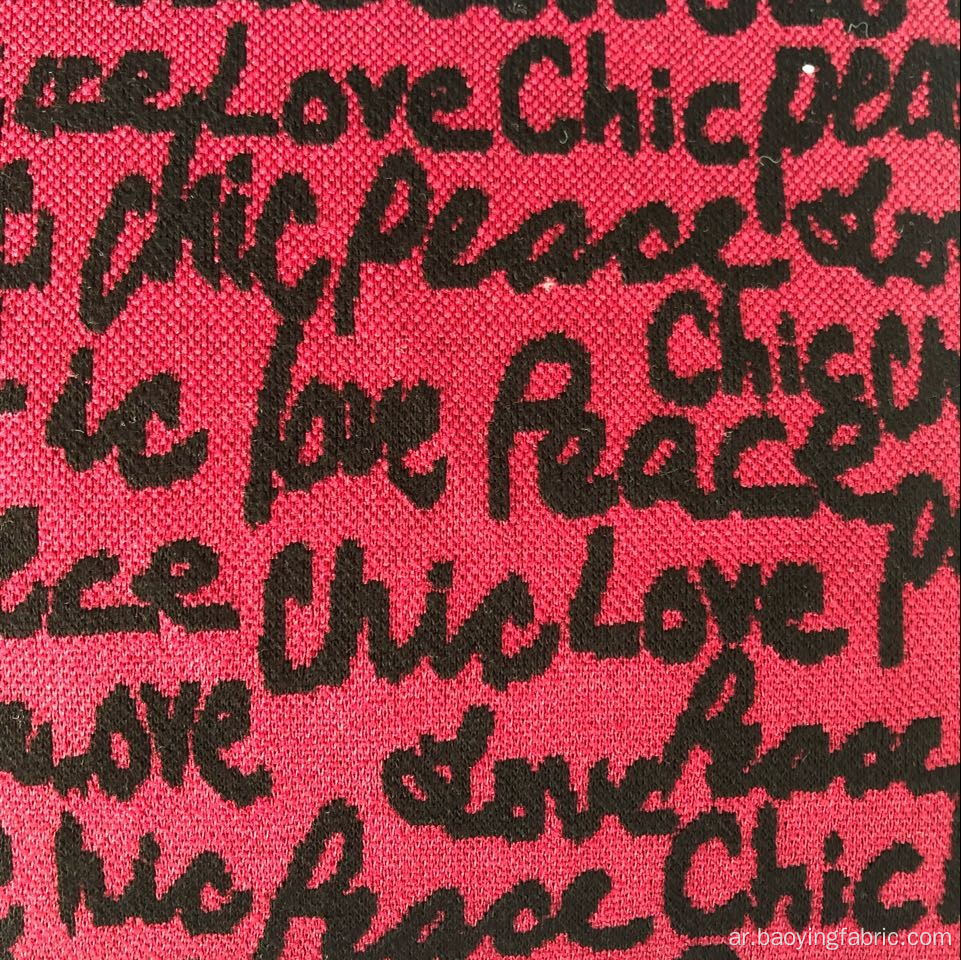 ace Love Chic pea
chic peace Lo
Chic Ch
ic love Peace p
ce Chic Love
Love Love Peace
hic Peace Chic
ar.baoyingfabric.com